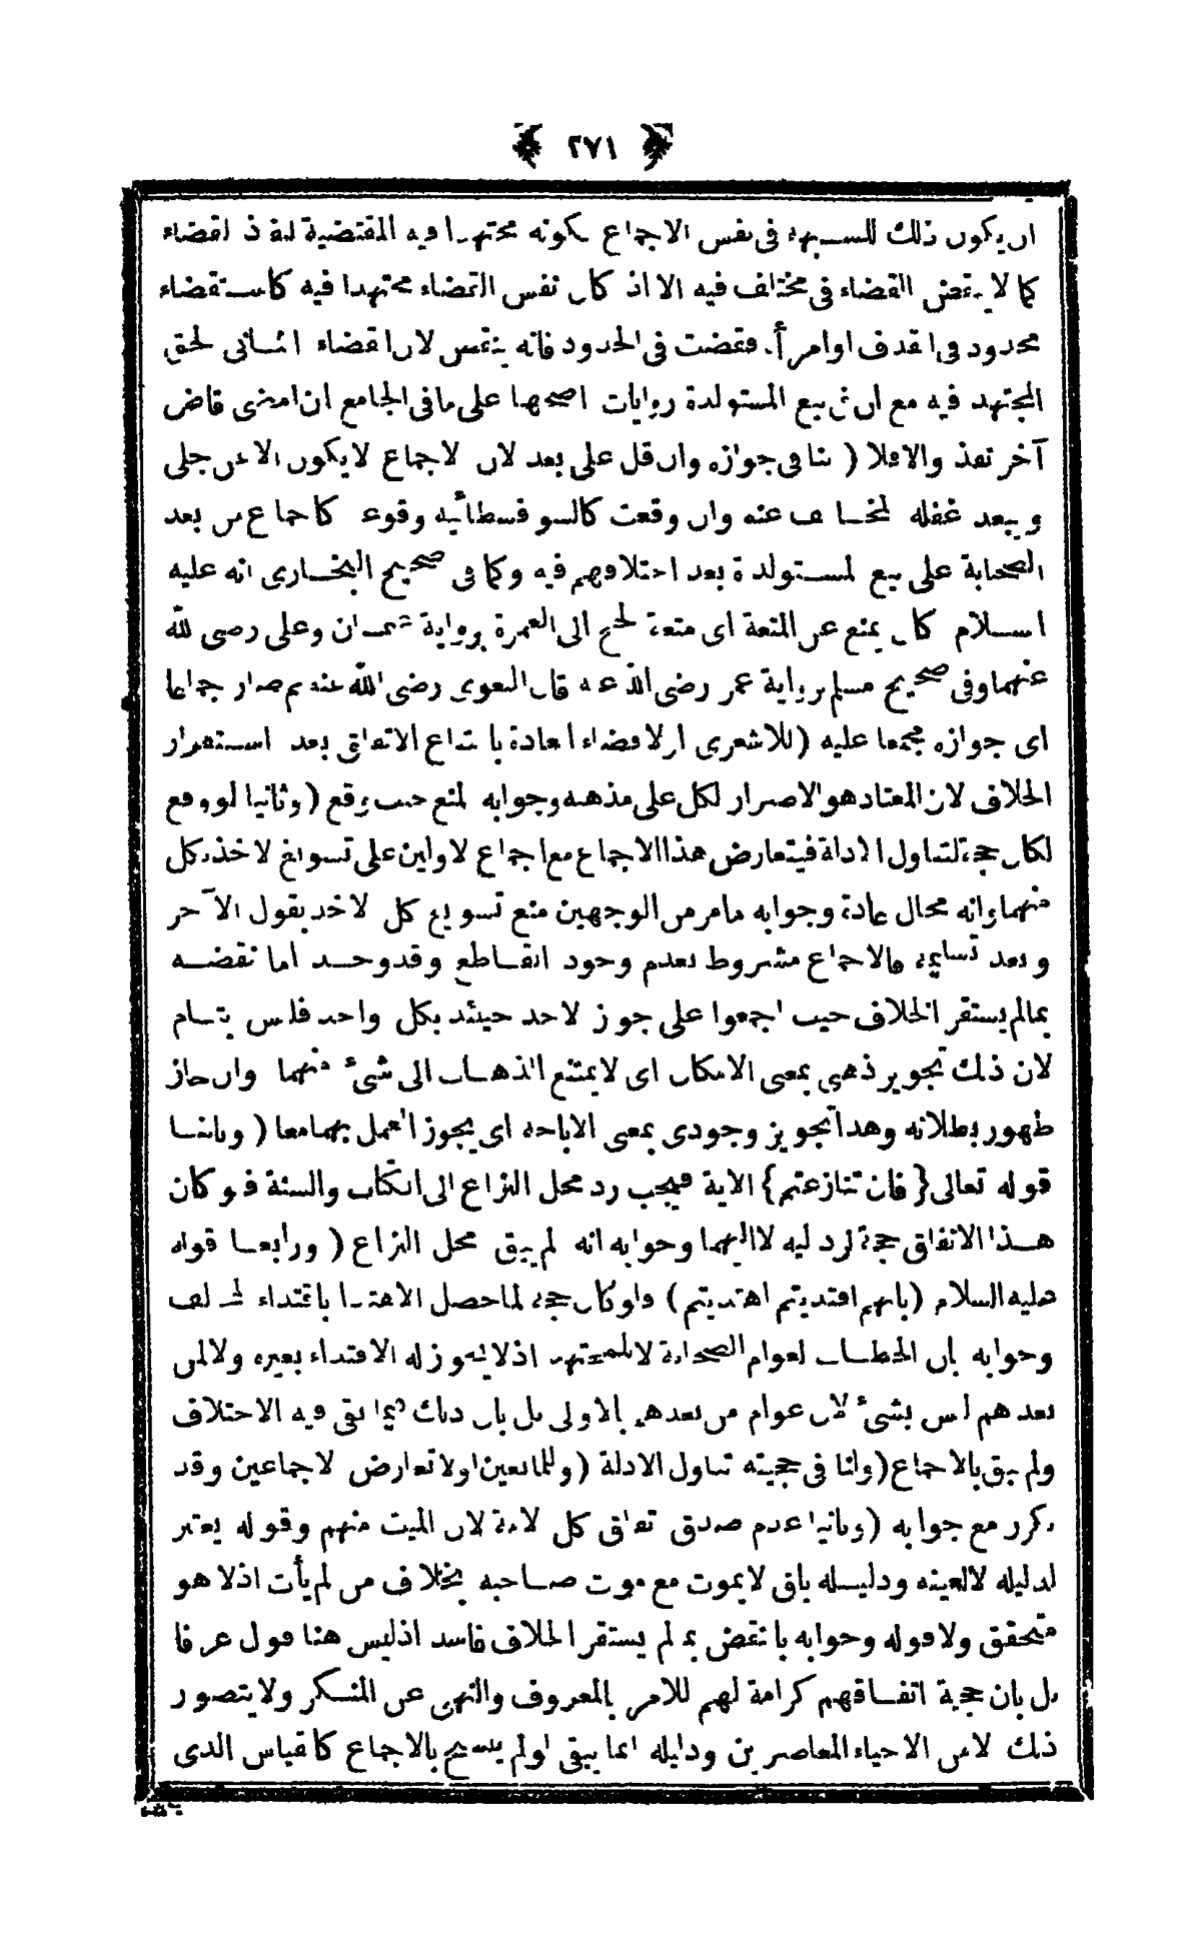 ﴿ ٢٧١ ﴾
ان يكون ذلك للشبهة فى نفس الاجماع بكونه مجتهدا فيه المقتضية لنفاذ القضاء
كما لا ينقض القضاء فى مختلف فيه الا اذا كان نفس القضاء مجتهدا فيه كاستقضاء
محدود فى القذف او امرأة فقضت فى الحدود فانه ينقض لان القضاء الثانى لحق
المجتهد فيه مع ان فى بيع المستولدة روايات اصحها على ما فى الجامع ان امضى قاض
آخر نفذ والا فلا ( لنا فى جوازه وان قل على بعد لان الاجماع لا يكون الا عن جلى
ويبعد غفلة المخالف عنه وان وقعت كالسوفسطائية وقوعه كاجماع من بعد
الصحابة على بيع المستولدة بعد اختلافهم فيه وكما فى صحيح البخارى انه عليه
السلام كان يمنع عن المتعة اى متعة الحج الى العمرة برواية عثمان وعلى رضى الله
عنهما وفى صحيح مسلم برواية عمر رضى الله عنه قال البغوى رضى الله عنه ثم صار اجماعا
اى جوازه مجمعا عليه ( للاشعرى اولا قضاء العادة بامتناع الاتفاق بعد استقرار
الخلاف لان المعتاد هو الاصرار لكل على مذهبه وجوابه المنع حيث وقع ( وثانيا لو وقع
لكان حجة لتناول الادلة فيتعارض هذا الاجماع مع اجماع الاولين على تسويغ الاخذ بكل
منهما وانه محال عادة وجوابه ما مر من الوجهين منع تسويغ كل الاخذ بقول الآخر
وبعد تسليمه فالاجماع مشروط بعدم وجود القاطع وقد وجد اما نقضه
بما لم يستقر الخلاف حيث اجمعوا على جواز الاخذ حينئذ بكل واحد فليس بتام
لان ذلك تجويز ذهنى بمعنى الامكان اى لا يمتنع الذهاب الى شئ منهما وان جاز
ظهور بطلانه وهذا تجويز وجودى بمعنى الاباحة اى يجوز العمل بهما معا ( وثالثا
قوله تعالى { فان تنازعتم } الاية فيجب رد محل النزاع الى الكتاب والسنة فلو كان
هذا الاتفاق حجة لرد اليه لا اليهما وجوابه انه لم يبق محل النزاع ( ورابعا قوله
عليه السلام ( بايهم اقتديتم اهتديتم ) ولو كان حجة لما حصل الاهتداء باقتداء المخالف
وجوابه بان الخطاب لعوام الصحابة لا للمجتهد اذ لا يجوز له الاقتداء بغيره ولا لمن
بعدهم ليس بشئ لان عوام من بعدهم بالاولى بل بان ذلك فيما بقى فيه الاختلاف
ولم يبق بالاجماع ( ولنا فى حجيته تناول الادلة ( وللمانعين اولا تعارض الاجماعين وقد
تكرر مع جوابه ( وثانيا عدم صدق اتفاق كل الامة لان الميت منهم وقوله يعتبر
لدليله لا لعينه ودليله باق لا يموت مع موت صاحبه بخلاف من لم يأت اذ لا هو
متحقق ولا قوله وجوابه بالنقض بما لم يستقر الخلاف فاسد اذ ليس هنا قول عرفا
بل بان حجية اتفاقهم كرامة لهم للامر بالمعروف والنهى عن المنكر ولا يتصور
ذلك الا من الاحياء المعاصرين ودليله انما يبقى لو لم ينسخ بالاجماع كالقياس الذى